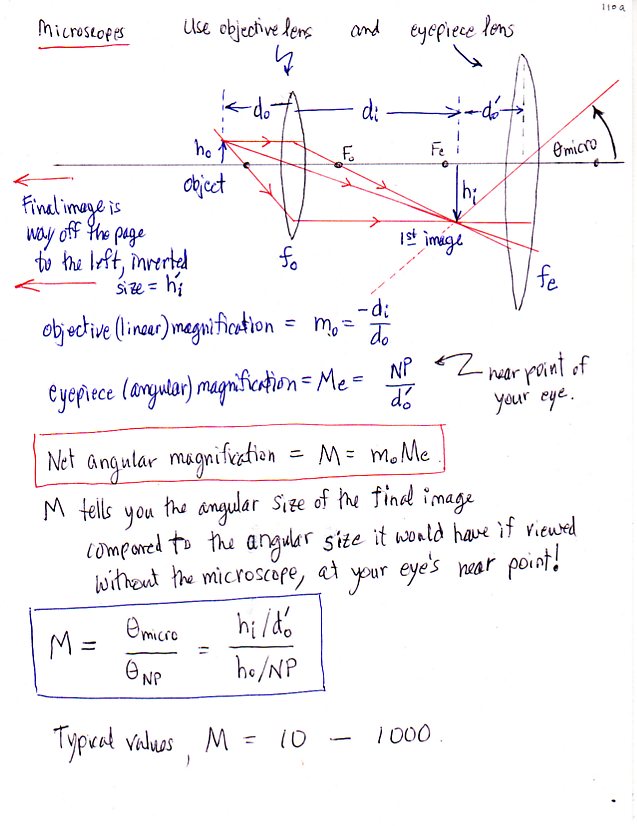 110a
Microscopes Use objective lens and eyepiece lens
do di do′
ho Fo Fe θmicro
object hi
1st image
fo fe
Final image is
way off the page
to the left, inverted
size = hi′
objective (linear) magnification = mo = -di/do
eyepiece (angular) magnification = Me = NP/do′
near point of
your eye.
Net angular magnification = M = moMe
M tells you the angular size of the final image
compared to the angular size it would have if viewed
without the microscope, at your eye's near point!
M = θmicro/θNP = hi/do′ / ho/NP
Typical values, M = 10 – 1000.